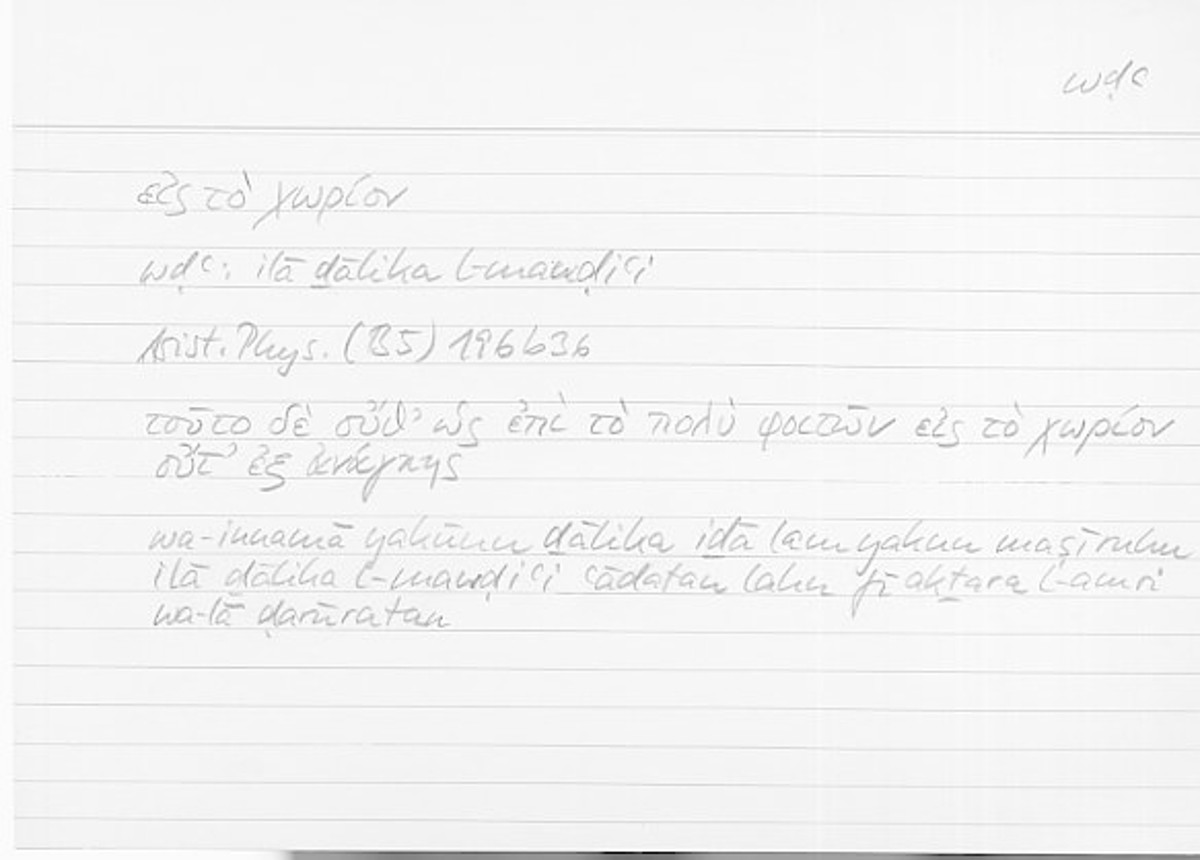 wḍʿ
εἰς τὸ χωρίον
wḍʿ: ilā ḏālika l-mawḍiʿi
Arist. Phys. (B5) 196b36
τοῦτο δὲ οὔθ' ὡς ἐπὶ τὸ πολὺ φοιτῶν εἰς τὸ χωρίον
οὔτ' ἐξ ἀνάγκης
wa-innamā yakūnu ḏālika iḏā lam yakun maṣīruhu
ilā ḏālika l-mawḍiʿi ʿādatan lahu fī akṯara l-amri
wa-lā ḍarūratan